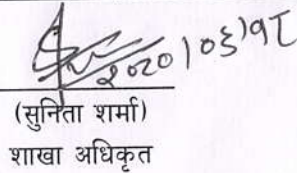 २०८०।०६।१८
(सुनिता शर्मा)
शाखा अधिकृत